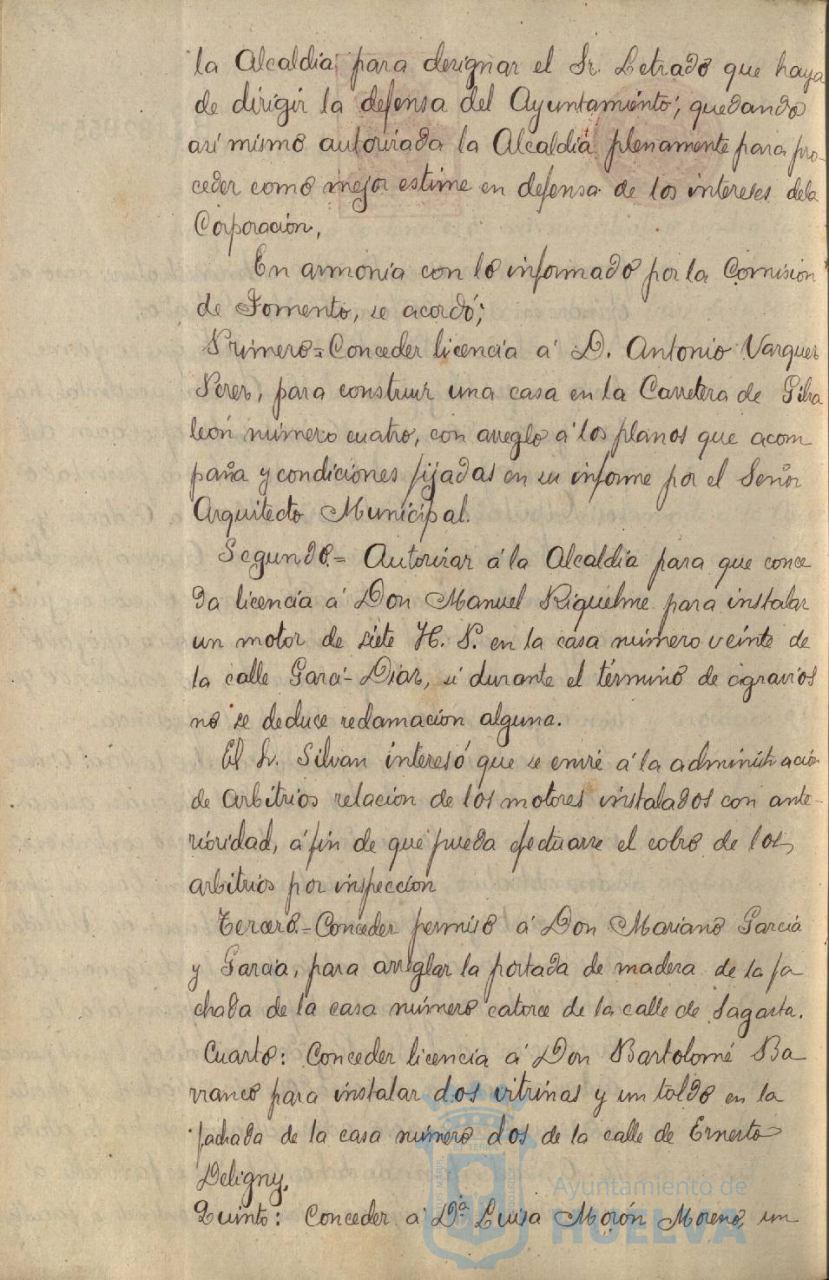 la Alcaldia para designar el Sr. Letrado que haya
de dirigir la defensa del Ayuntamiento; quedando
asi mismo autorizada la Alcaldia plenamente para pro-
ceder como mejor estime en defensa de los intereses dela
Corporación,
En armonia con lo informado por la Comision
de Fomento, se acordó;
Primero=Conceder licencia á D. Antonio Vazquez
Perez, para construir una casa en la Carretera de Gibra
leon número cuatro, con arreglo á los planos que acom
paña y condiciones fijadas en su informe por el Señor
Arquitecto Municipal.
Segundo.= Autorizar á la Alcaldia para que conce
da licencia á Don Manuel Riquelme para instalar
un motor de siete H. P. en la casa número veinte de
la calle Garci-Diaz, si durante el término de agravios
no se deduce reclamación alguna.
El Sr. Silvan interesó que se envie á la administración
de Arbitrios relacion de los motores instalados con ante-
rioridad, á fin de que pueda efectuarse el cobro de los
arbitrios por inspeccion
Tercero.-Conceder permiso á Don Mariano Garcia
y Garcia, para arreglar la portada de madera de la fa
chada de la casa número catorce de la calle de Sagasta.
Cuarto: Conceder licencia á Don Bartolomé Ba
rranco para instalar dos vitrinas y un toldo en la
fachada de la casa número dos de la calle de Ernesto
Deligny.
Quinto: Conceder á Dª Luisa Morón Moreno, un
Ayuntamiento de
HUELVA